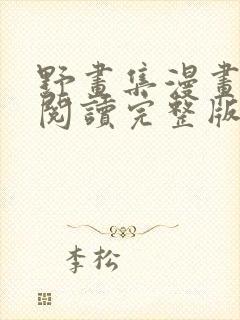 野畫集漫畫
閱讀完整版
李松